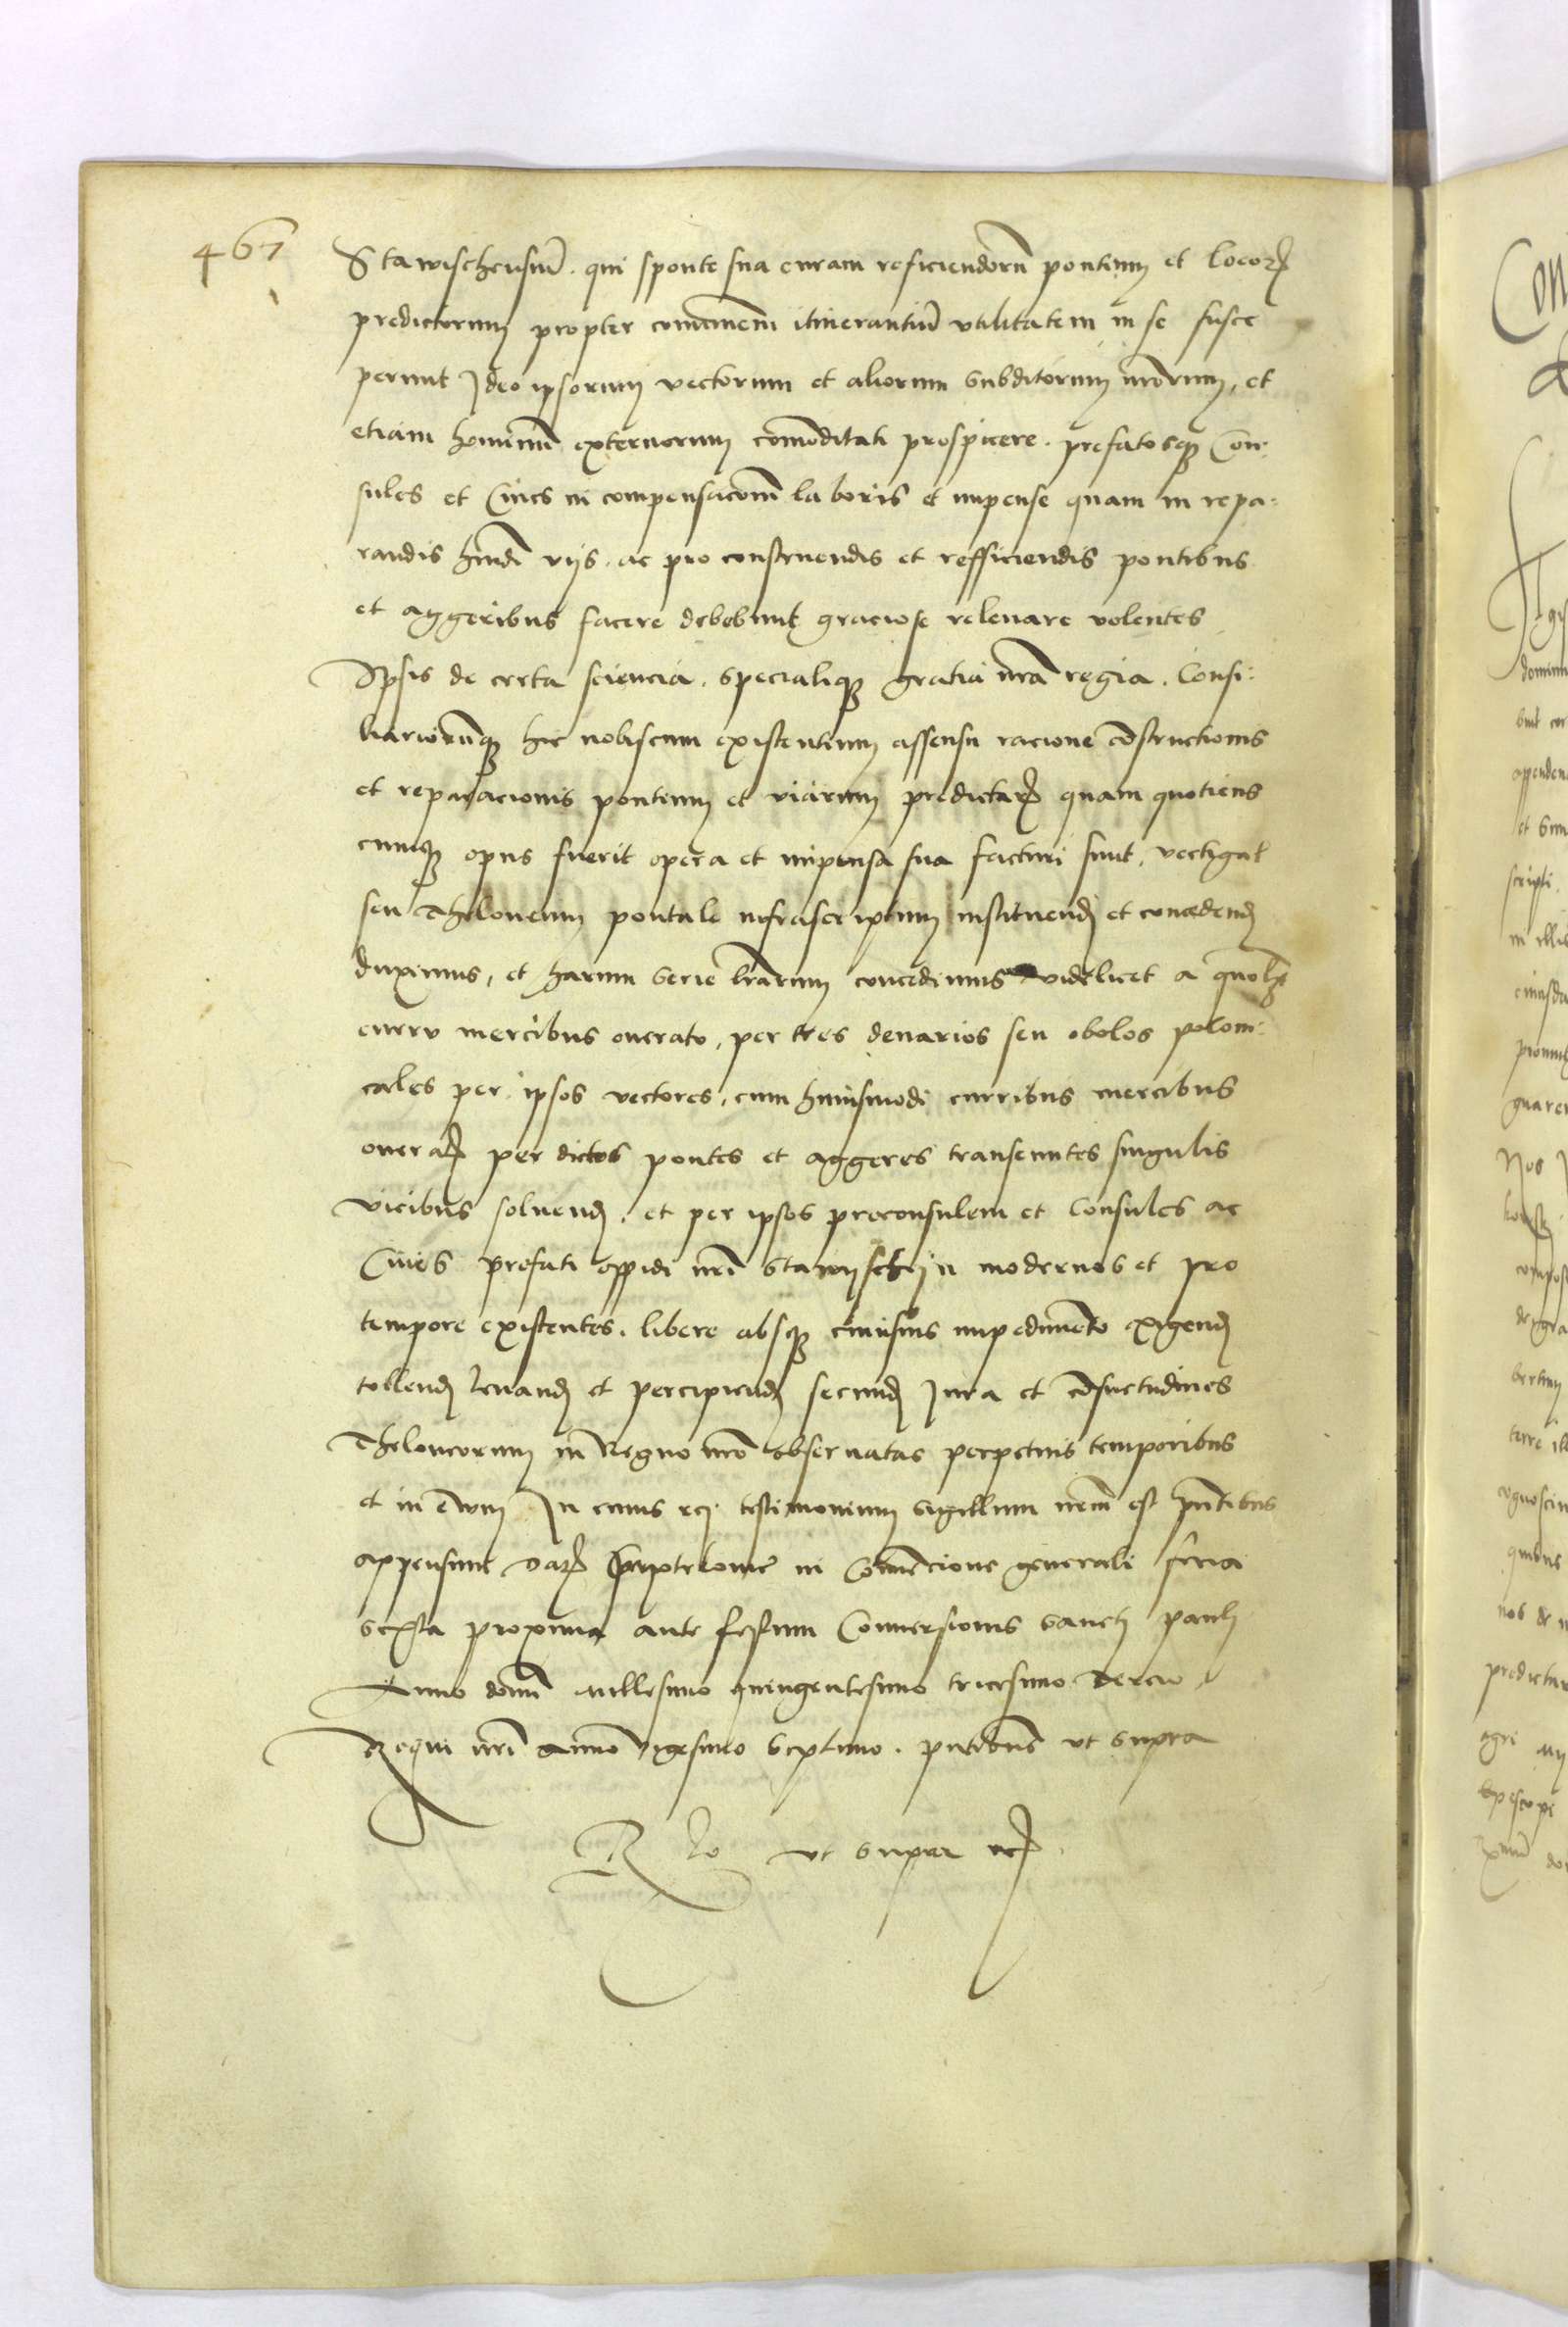 467
Stawischensiu̅. qui sponte sua curam reficiendoru̅ pontium et locorꝝ
predictorum propter com̅unem itinerantiu̅ vtilitatem in se susce
perunt Ideo ipsorum vectorum et aliorum subditorum nr̅orum, et
etiam hominu̅ externorum com̅oditati prospicere. prefatosqꝫ Con-
sules et Ciues in compensacio̅m laboris et impense quam in repa-
randis hmdi̅ vijs. ac pro construendis et refficiendis pontibus
et aggeribus facere debebunt graciose releuare volentes
Ipsis de certa sciencia. specialiqꝫ gratia nr̅a regia. Consi-
liarioru̅qꝫ hic nobiscum existentium assensu racione co̅structionis
et reparacionis pontium et viarum predictarꝝ quam quotiens
cunqꝫ opus fuerit opera et impensa sua facturi sunt, vectigal
seu Theloneum pontale infrascriptum instituend et concedend
duximus, et harum serie lr̅arum concedimus videlicet a quolꝫ
curru mercibus onerato, per tres denarios seu obolos poloni-
cales per ipsos vectores, cum huiusmodi curribus mercibus
onerat̅ per dictos pontes et aggeres transeuntes singulis
vicibus soluend. et per ipsos preconsulem et Consules ac
Ciues prefati oppidi nr̅i Stawyschyn modernos et pro
tempore existentes. libere absqꝫ cuiusuis impedimento exigend
tollend leuand et percipiend secund Iura et co̅suetudines
Theloneorum in Regno nr̅o obseruatas perpetuis temporibus
et in ewm In cuius rej testimonium sigillum nr̅m est pn̅tibus
appensum Datꝝ Pyotrkouie in Co̅uencione generali feria
sexta proxima ante festum Conuersionis sancti pauli
Anno domi̅ millesimo quingentesimo tricesimo Tercio,
Regni nr̅i anno vigesimo septimo. pn̅tibus vt supra
R lo vt super etc.